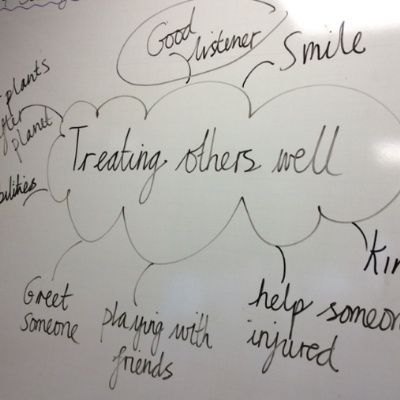 Good
listener
Smile
plants
planet
Treating others well
Greet
someone
playing with
friends
help someon
injured